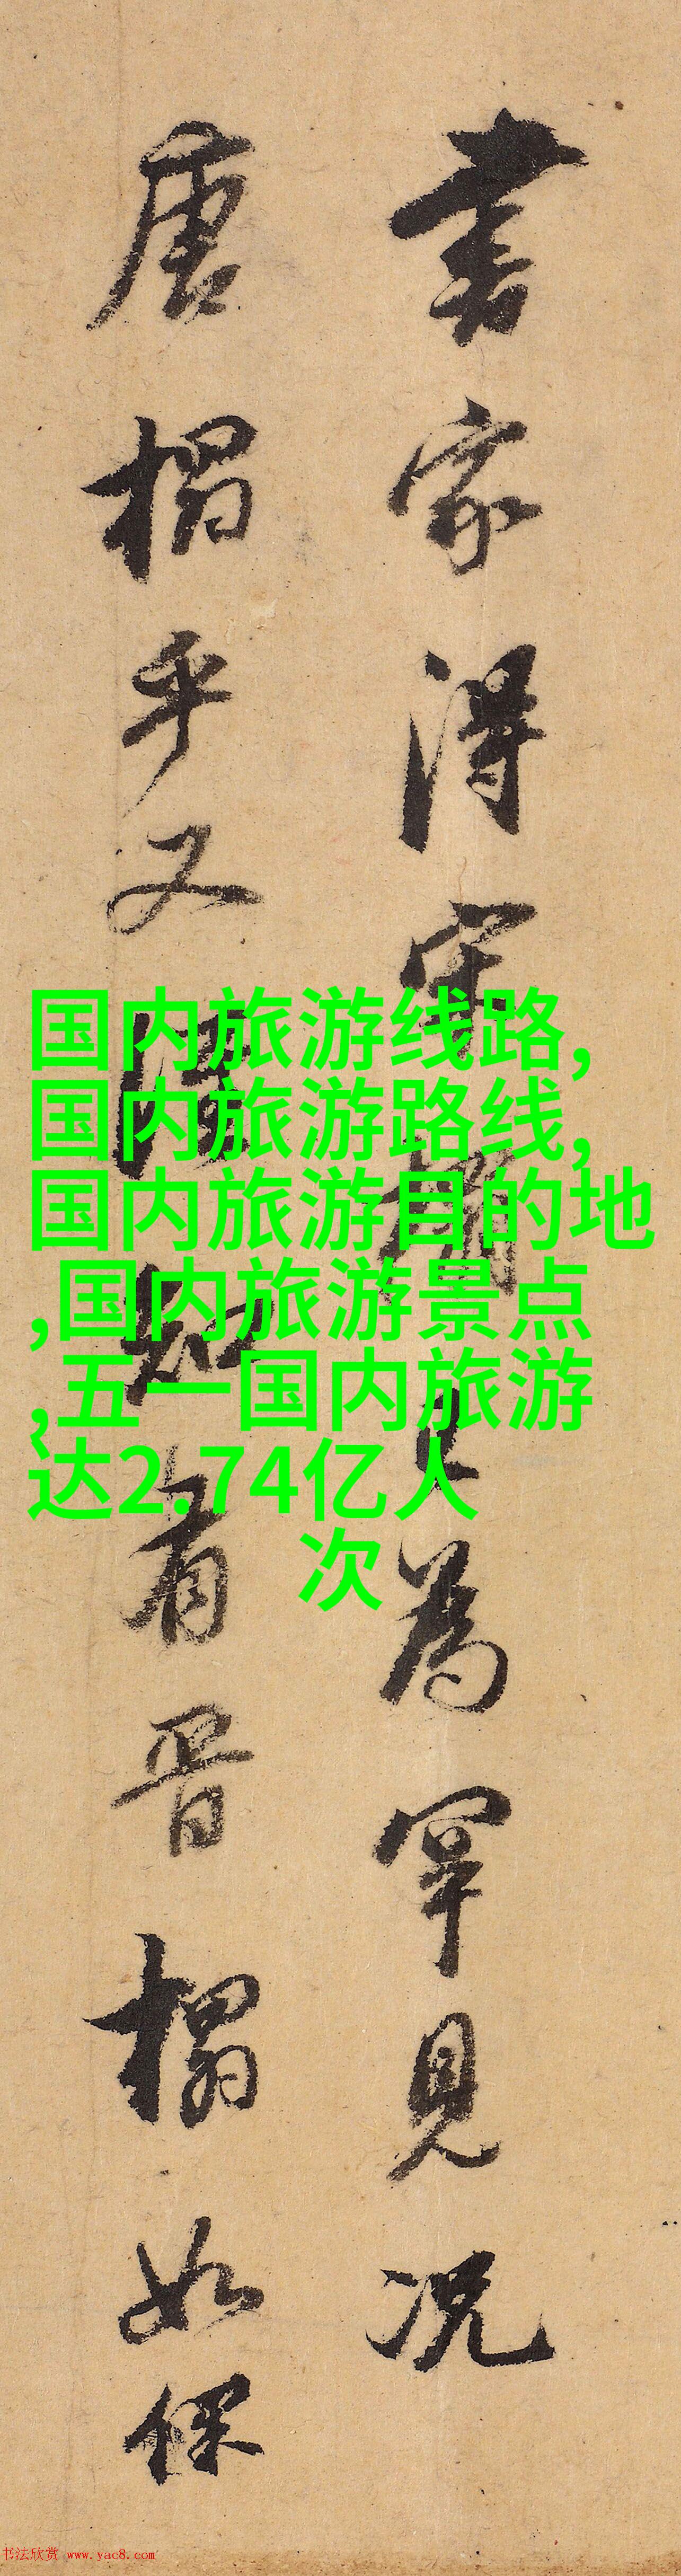 書家得宋榻已為罕見況
唐榻乎又得知有晋榻如保
国内旅游线路,
国内旅游路线,
国内旅游目的地
,国内旅游景点
,五一国内旅游
达2.74亿人
次
书法欣赏 www.yac8.com